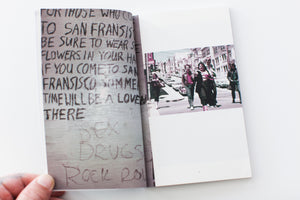 FOR THOSE WHO CO
TO SAN FRANSIS
BE SURE TO WEAR S
FLOWERS IN YOUR HA
IF YOU COME TO SAN
FRANSISCO SUMME
TIME WILL BE A LOVE
THERE
SEX
DRUGS
ROCK RO